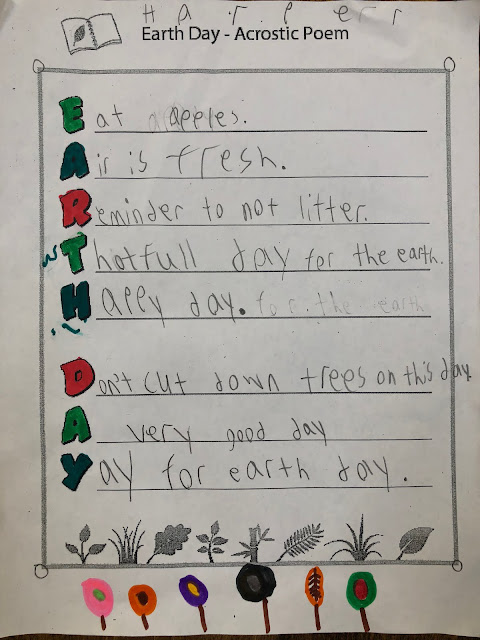 H a r p e r r
Earth Day - Acrostic Poem
Eat apples.
Air is fresh.
Reminder to not litter.
Thotfull day for the earth.
Happy day. for the earth
Don't cut down trees on this day
A very good day
Yay for earth day.